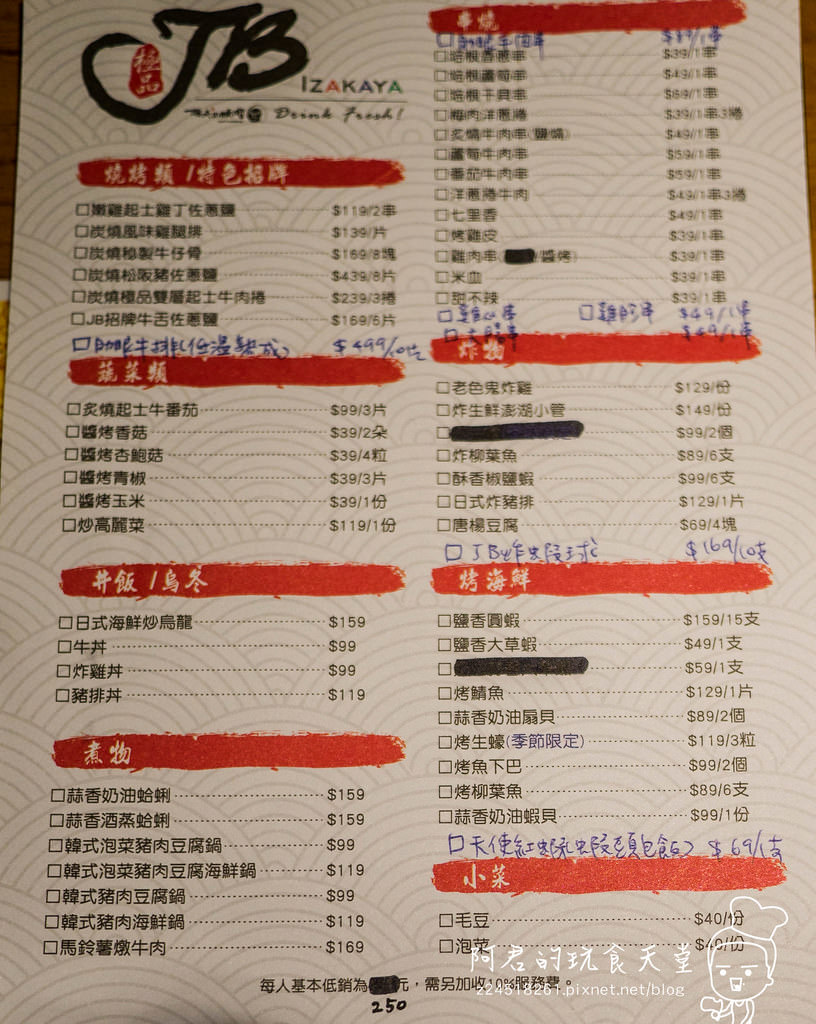 極品
JB
IZAKAYA
Drink Fresh!
燒烤類 / 特色招牌
□嫩雞起士雞丁佐蔥鹽 $119/2串
□炭燒風味雞腿排 $139/片
□炭燒秘製牛仔骨 $169/8塊
□炭燒松阪豬佐蔥鹽 $439/8片
□炭燒極品雙層起士牛肉捲 $239/3捲
□JB招牌牛舌佐蔥鹽 $169/6片
□肋眼牛排(低溫熟成) $499/10支
蔬菜類
□炙燒起士牛番茄 $99/3片
□醬烤香菇 $39/2朵
□醬烤杏鮑菇 $39/4粒
□醬烤青椒 $39/3片
□醬烤玉米 $39/1份
□炒高麗菜 $119/1份
丼飯 / 烏冬
□日式海鮮炒烏龍 $159
□牛丼 $99
□炸雞丼 $99
□豬排丼 $119
煮物
□蒜香奶油蛤蜊 $159
□蒜香酒蒸蛤蜊 $159
□韓式泡菜豬肉豆腐鍋 $99
□韓式泡菜豬肉豆腐海鮮鍋 $119
□韓式豬肉豆腐鍋 $99
□韓式豬肉海鮮鍋 $119
□馬鈴薯燉牛肉 $169
串燒
□肋眼牛肉串 $89/1串
□培根香蔥串 $39/1串
□培根蘆筍串 $49/1串
□培根干貝串 $69/1串
□梅肉洋蔥捲 $39/1串3捲
□炙燒牛肉串(鹽燒) $49/1串
□蘆筍牛肉串 $59/1串
□番茄牛肉串 $59/1串
□洋蔥捲牛肉 $49/1串3捲
□七里香 $49/1串
□烤雞皮 $39/1串
□雞肉串( /醬烤) $39/1串
□米血 $39/1串
□甜不辣 $39/1串
□雞心串 □雞胗串 $49/1串
□大腸串 $49/1串
炸物
□老色鬼炸雞 $129/份
□炸生鮮澎湖小管 $149/份
□ $99/2個
□炸柳葉魚 $89/6支
□酥香椒鹽蝦 $99/6支
□日式炸豬排 $129/1片
□唐楊豆腐 $69/4塊
□JB炸蝦球 $169/10支
烤海鮮
□鹽香圓蝦 $159/15支
□鹽香大草蝦 $49/1支
□ $59/1支
□烤鯖魚 $129/1片
□蒜香奶油扇貝 $89/2個
□烤生蠔(季節限定) $119/3粒
□烤魚下巴 $99/2個
□烤柳葉魚 $89/6支
□蒜香奶油蝦貝 $99/1份
□天使紅蝦(蝦頭包飯) $69/1支
小菜
□毛豆 $40/份
□泡菜 $40/份
每人基本低銷為 元，需另加收10%服務費。
250
阿君的玩食天堂
224518261.pixnet.net/blog